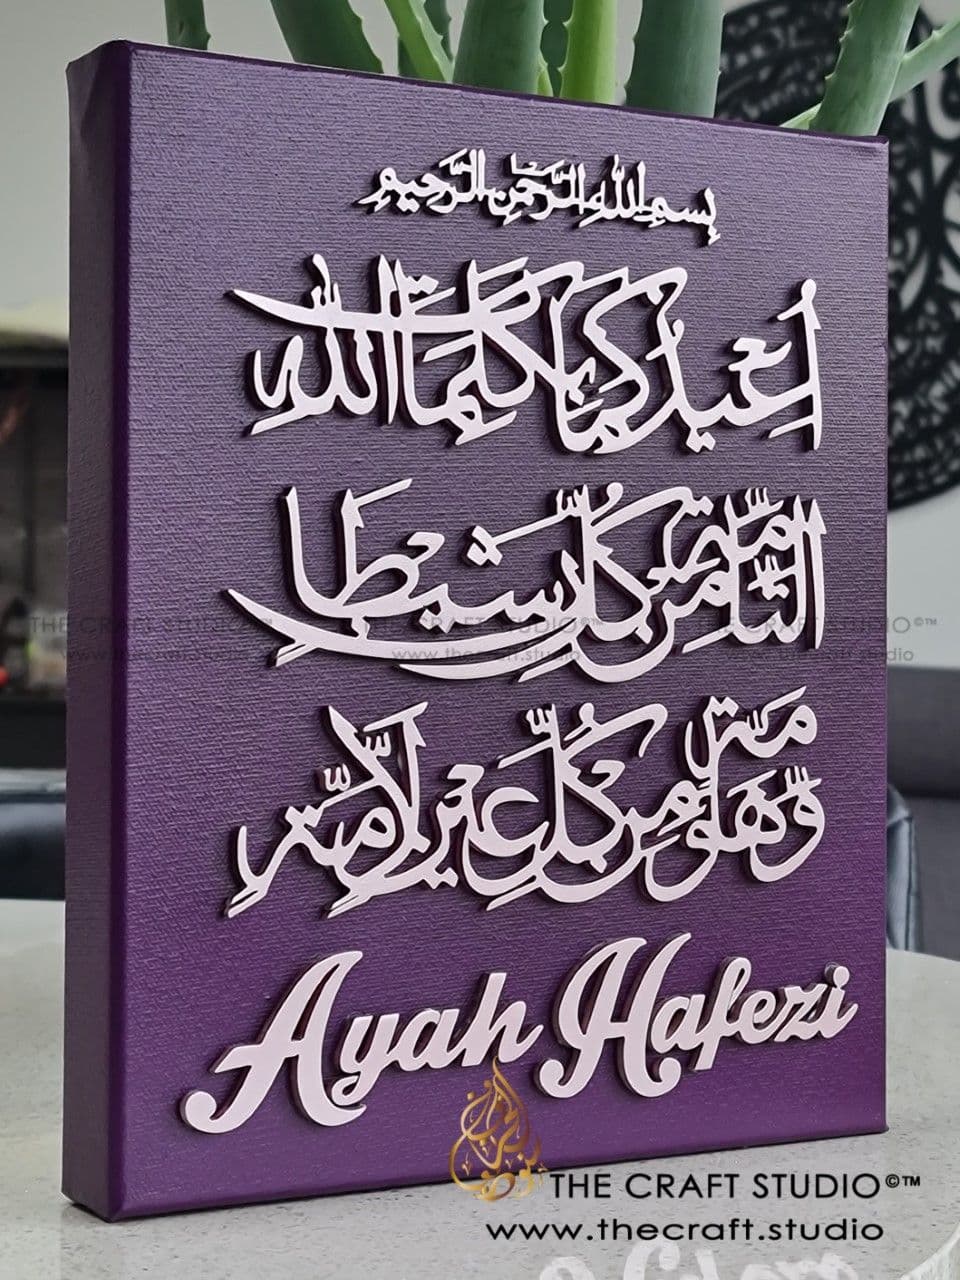 بِسمِ اللهِ الرَّحمٰنِ الرَّحِيمِ
اُعِيذُكُمَا بِكَلِمَاتِ اللهِ
التَّامَّةِ مِن كُلِّ شَيطَانٍ
وَّهَامَّةٍ وَّمِن كُلِّ عَينٍ لَامَّةٍ
Ayah Hafezi
THE CRAFT STUDIO©™ THE CRAFT STUDIO©™ THE CRAFT STUDIO©™
www.thecraft.studio www.thecraft.studio www.thecraft.studio
THE CRAFT STUDIO©™
www.thecraft.studio